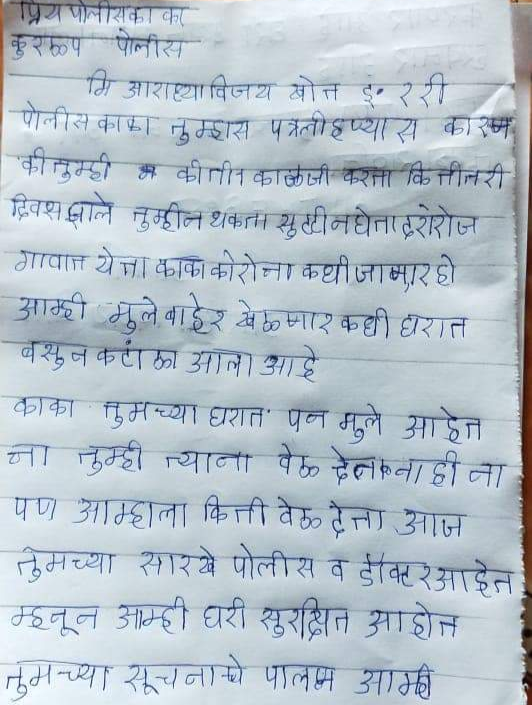 प्रिय पोलीसका का
कुरळप पोलीस
मि आराध्या विजय खोत इ. २ री
पोलीस काका तुम्हास पत्र लीहण्या स कारण
की तुम्ही कीती काळजी करता कि तीतरी
दिवस झाले तुम्ही न थकता सुट्टी न घेता दरोरोज
गावात येता काका कोरोना कधी जाणार हो
आम्ही मुले बाहेर खेळणार कधी घरात
बसुन कटांळा आला आहे
काका तुमच्या घरात पन मुले आहेत
ना तुम्ही त्याना वेळ देत नाही ना
पण आम्हाला किती वेळ देता आज
तुमच्या सारखे पोलीस व डॉक्टर आहेत
म्हनून आम्ही घरी सुरक्षित आहोत
तुमच्या सूचनाचे पालन आम्ही